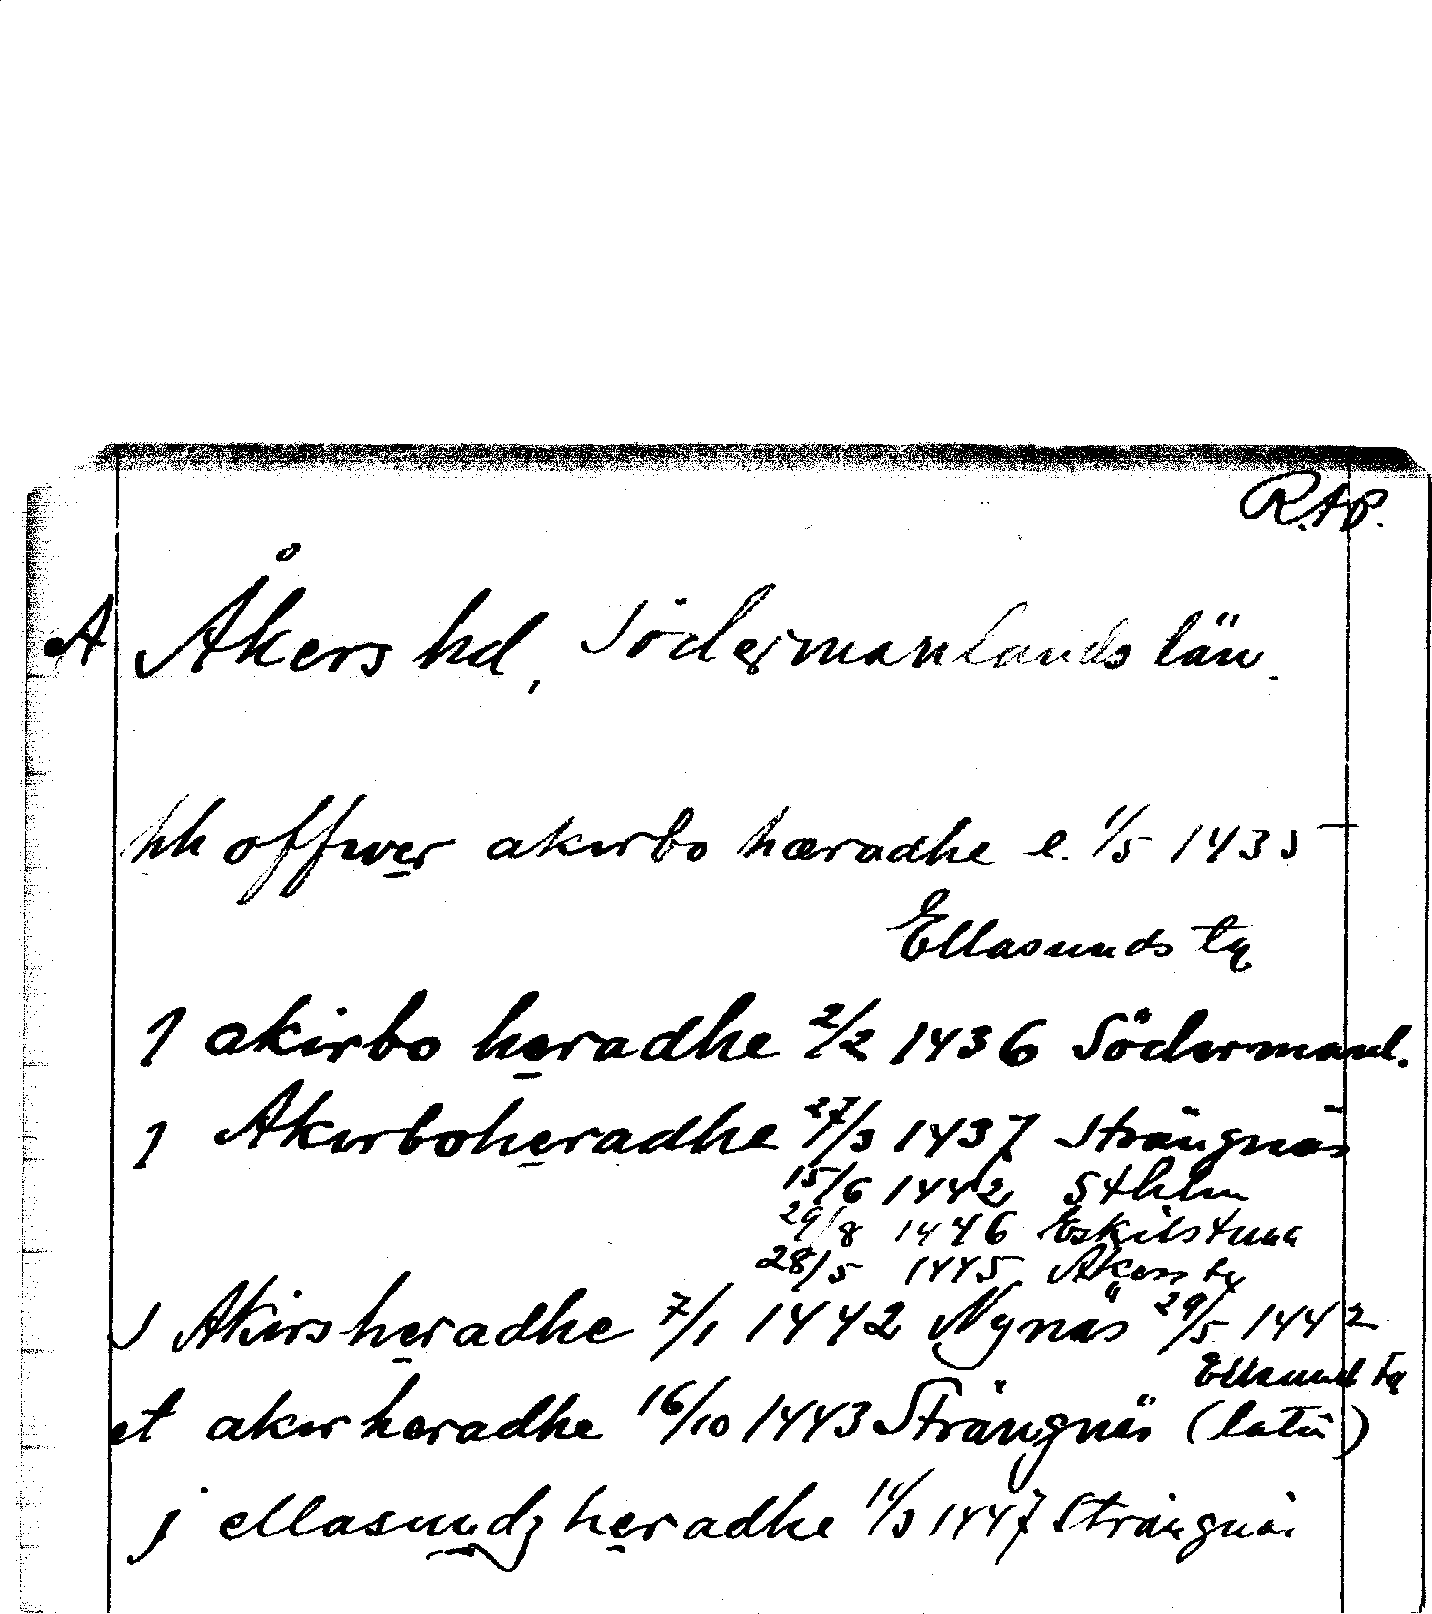 R.A.P.
A Åkers hd, Södermanlands län.
hh offwer akirbo hæradhe e. 1/5 1435
Ellasunds tg
J akirbo heradhe 2/2 1436 Södermanl.
J Akirboheradhe 27/3 1437 Strängnäs
15/6 1442 Sthlm
29/8 1446 Eskilstuna
28/5 1445 Åkers tg
J Akirsheradhe 7/1 1442 Nynäs 29/5 1442
Ellasund tg
et akirheradhe 16/10 1443 Strängnäs (latin)
j ellasundz heradhe 11/3 1447 Strängnäs